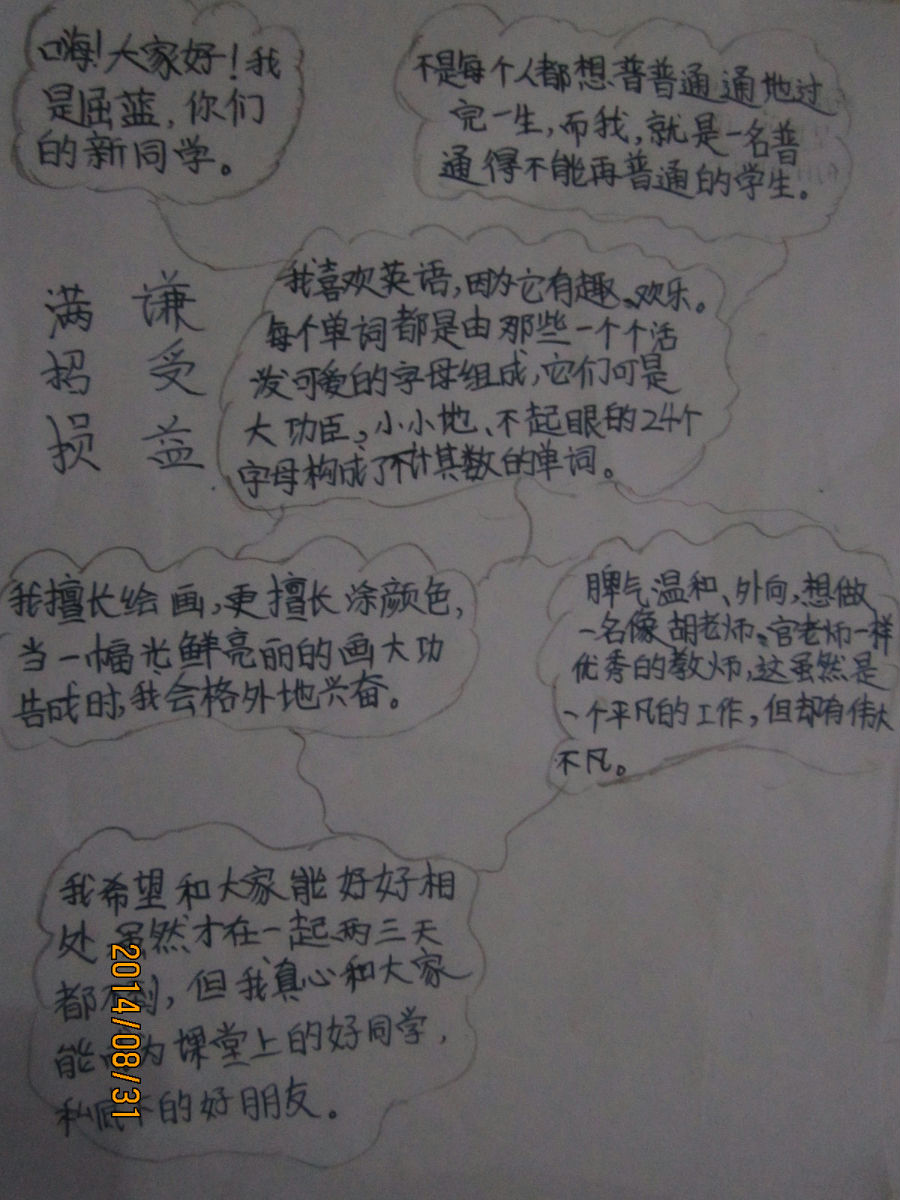 嗨!大家好!我
是屈蓝,你们
的新同学。
不是每个人都想普普通通地过
完一生,而我,就是一名普
通得不能再普通的学生。
满 谦
招 受
损 益
我喜欢英语,因为它有趣、欢乐。
每个单词都是由那些一个个活
泼可爱的字母组成,它们可是
大功臣,小小地、不起眼的24个
字母构成了不计其数的单词。
我擅长绘画,更擅长涂颜色,
当一幅光鲜亮丽的画大功
告成时,我会格外地兴奋。
脾气温和、外向,想做
一名像胡老师、官老师一样
优秀的教师,这虽然是
一个平凡的工作,但却有伟大
不凡。
我希望和大家能好好相
处 虽然才在一起两三天
都不到,但我真心和大家
能成为课堂上的好同学,
私底下的好朋友。
2014/08/31